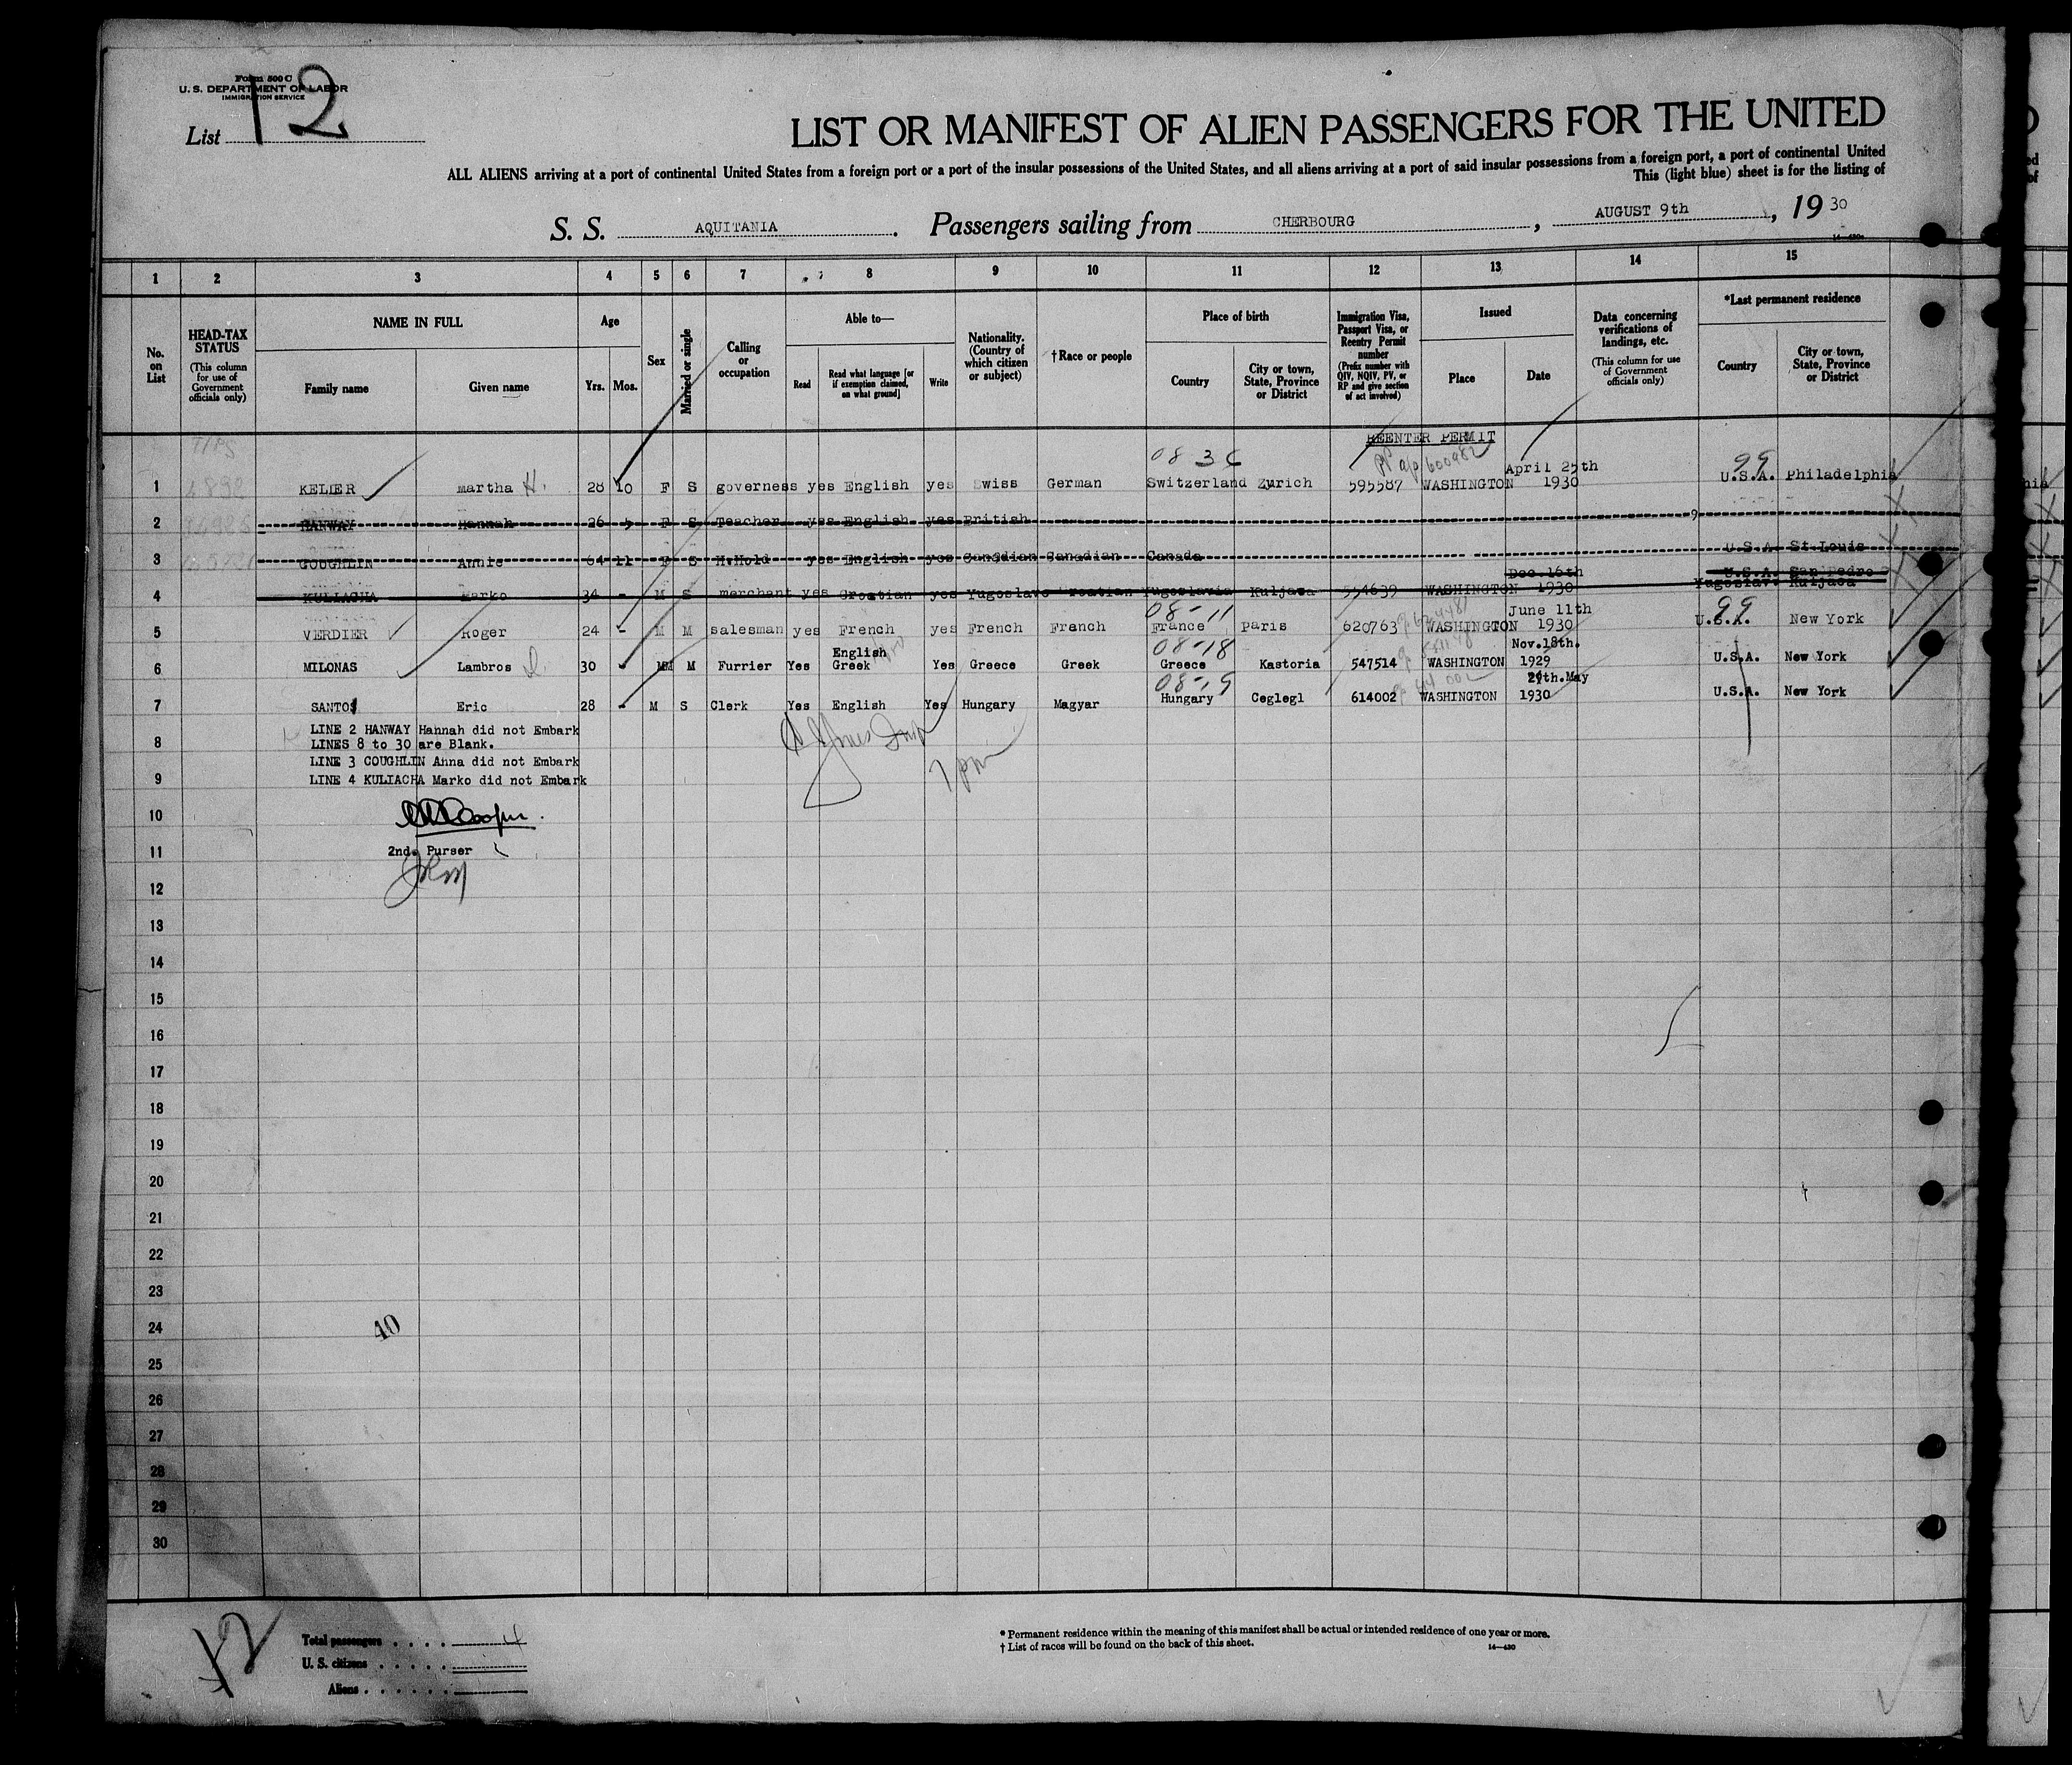 Form 500 C
U. S. DEPARTMENT OF LABOR
IMMIGRATION SERVICE
List 12
LIST OR MANIFEST OF ALIEN PASSENGERS FOR THE UNITED
ALL ALIENS arriving at a port of continental United States from a foreign port or a port of the insular possessions of the United States, and all aliens arriving at a port of said insular possessions from a foreign port, a port of continental United
This (light blue) sheet is for the listing of
S. S. AQUITANIA. Passengers sailing from CHERBOURG, AUGUST 9th, 19 30
14-430
1 2 3 4 5 6 7 8 9 10 11 12 13 14 15
No. on List
HEAD-TAX STATUS (This column for use of Government officials only)
NAME IN FULL
Family name Given name
Age
Yrs. Mos.
Sex
Married or single
Calling or occupation
Able to—
Read
Read what language [or if exemption claimed, on what ground]
Write
Nationality. (Country of which citizen or subject)
†Race or people
Place of birth
Country
City or town, State, Province or District
Immigration Visa, Passport Visa, or Reentry Permit number (Prefix number with QIV, NQIV, PV, or RP and give section of act involved)
Issued
Place Date
Data concerning verifications of landings, etc. (This column for use of Government officials only)
*Last permanent residence
Country
City or town, State, Province or District
REENTER PERMIT
08 36 99
1 KELLER Martha H. 28 10 F S governess yes English yes Swiss German Switzerland Zurich 595587 WASHINGTON April 25th 1930 U.S.A. Philadelphia
2 HANWAY Hannah 26 5 F S Teacher yes English yes British
3 COUGHLIN Annie 64 11 F S H.Hold yes English yes Canadian Canadian Canada U.S.A. St.Louis
4 KULIACHA Marko 34 - M S merchant yes Croatian yes Yugoslavc Croatian Yugoslavia Kuljaca 554639 WASHINGTON Dec.16th 1930 U.S.A. San Pedro Yugoslav. Kuljaca
08-11 99
5 VERDIER Roger 24 - M M salesman yes French yes French French France Paris 620763 WASHINGTON June 11th 1930 U.S.A. New York
08-18
6 MILONAS Lambros 30 - M M Furrier Yes English Greek Yes Greece Greek Greece Kastoria 547514 WASHINGTON Nov.18th. 1929 U.S.A. New York
08-19
7 SANTO Eric 28 - M S Clerk Yes English Yes Hungary Magyar Hungary Ceglegl 614002 WASHINGTON 29th.May 1930 U.S.A. New York
LINE 2 HANWAY Hannah did not Embark
8 LINES 8 to 30 are Blank.
LINE 3 COUGHLIN Anna did not Embark
9 LINE 4 KULIACHA Marko did not Embark
7 pm
10
11 2nd. Purser
12
13
14
15
16
17
18
19
20
21
22
23
24 40
25
26
27
28
29
30
12
Total passengers . . . . 4
U. S. citizens . . . . .
Aliens . . . . . .
* Permanent residence within the meaning of this manifest shall be actual or intended residence of one year or more.
† List of races will be found on the back of this sheet.
14-430